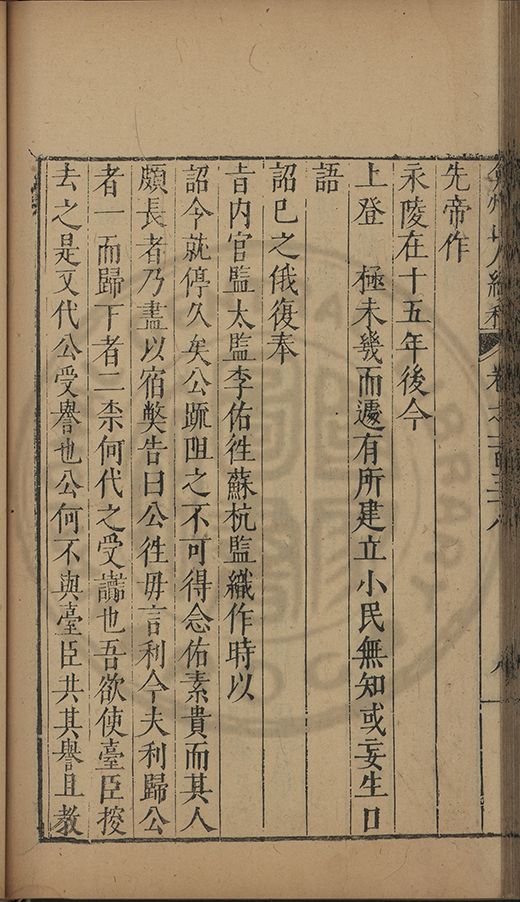 先帝作
永陵在十五年後今
上登　極未幾而遽有所建立小民無知或妄生口
語
詔已之俄復奉
旨内官監太監李佑徃蘇杭監織作時以
詔今就停久矣公疏阻之不可得念佑素貴而其人
頗長者乃盡以宿獘告曰公徃毋言利今夫利歸公
者一而歸下者二柰何代之受讟也吾欲使臺臣按
去之是又代公受譽也公何不與臺臣共其譽且教
卷之一百三十八